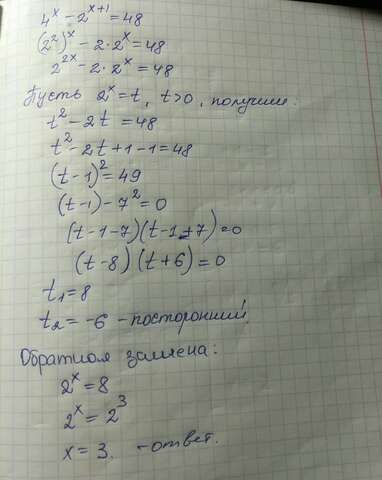 4^x - 2^(x+1) = 48
(2²)^x - 2 · 2^x = 48
2^(2x) - 2 · 2^x = 48
Пусть 2^x = t, t>0, получим:
t² - 2t = 48
t² - 2t + 1 - 1 = 48
(t - 1)² = 49
(t - 1) - 7² = 0
(t - 1 - 7)(t - 1 + 7) = 0
(t - 8)(t + 6) = 0
t₁ = 8
t₂ = -6 - посторонний.
Обратная замена:
2^x = 8
2^x = 2³
x = 3. - ответ.